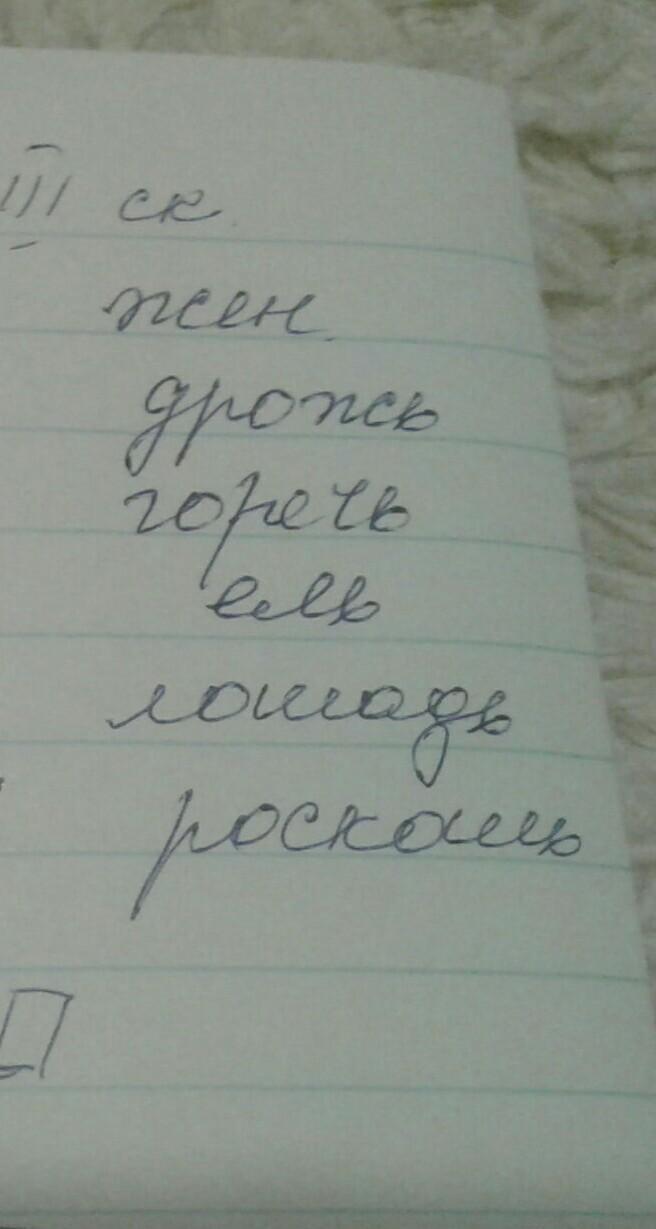 III ск.
жен.
дрожь
горечь
ель
лошадь
роскошь